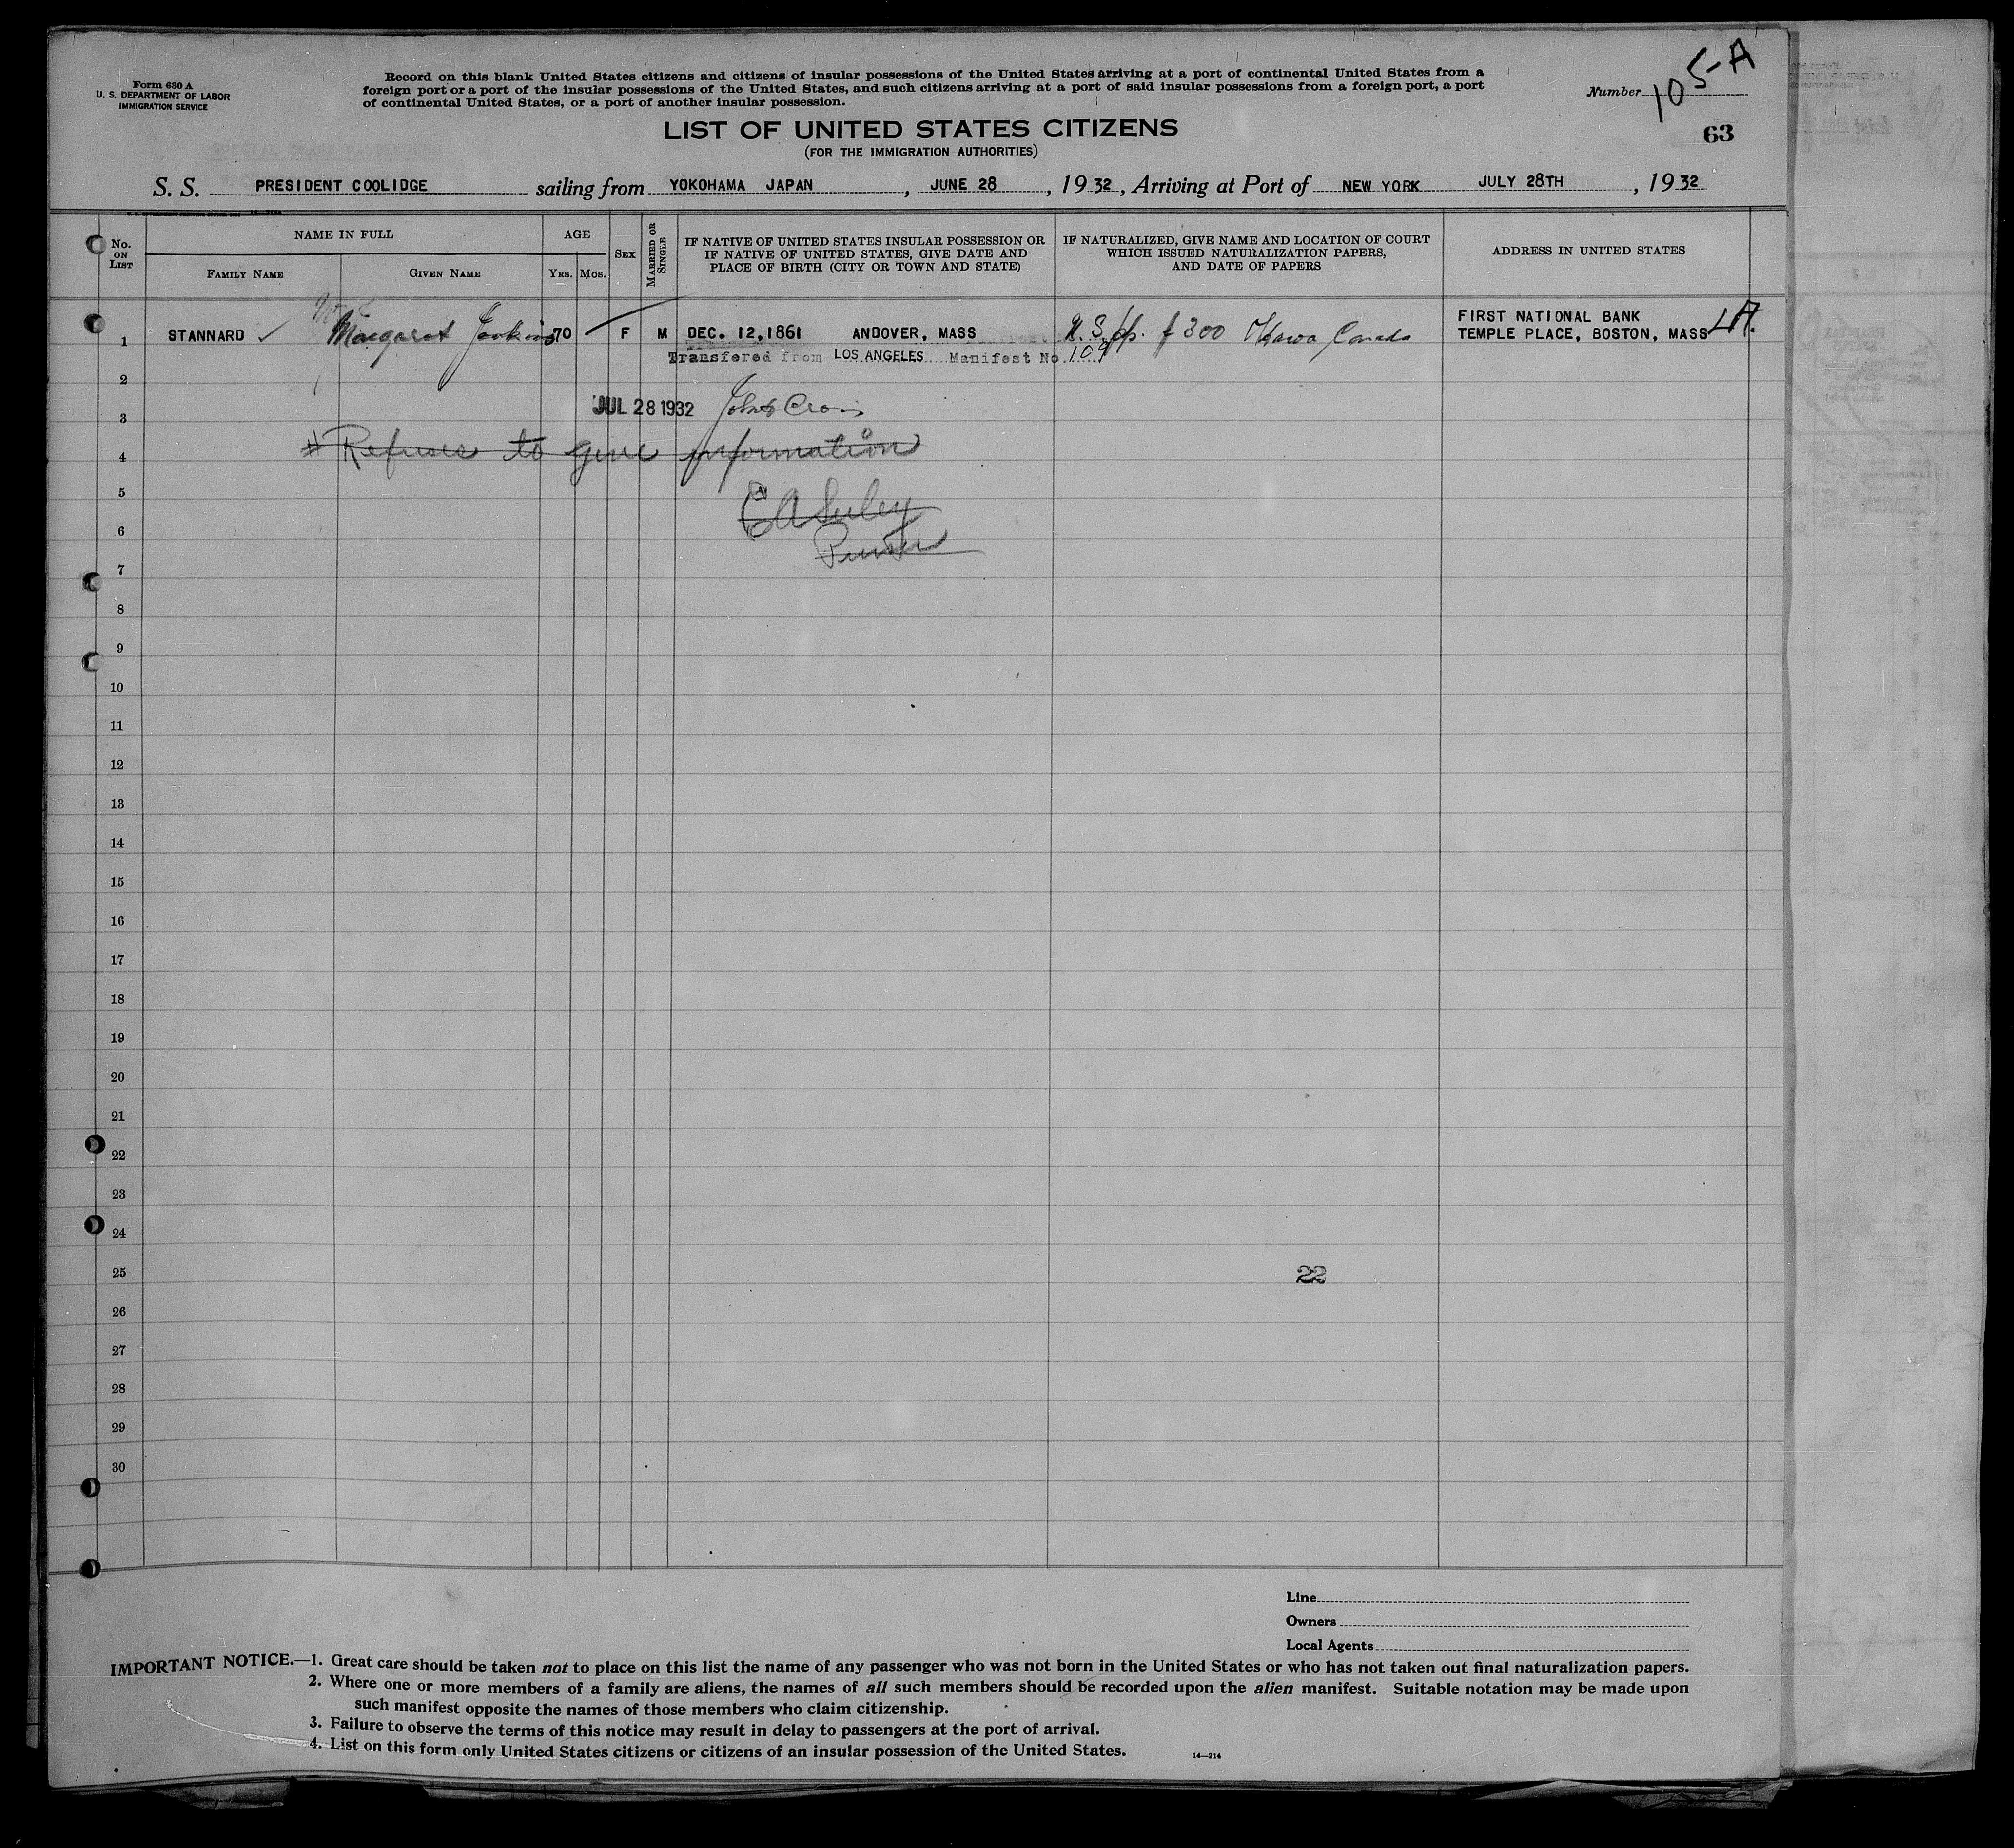 Form 630 A
U. S. DEPARTMENT OF LABOR
IMMIGRATION SERVICE
Record on this blank United States citizens and citizens of insular possessions of the United States arriving at a port of continental United States from a
foreign port or a port of the insular possessions of the United States, and such citizens arriving at a port of said insular possessions from a foreign port, a port
of continental United States, or a port of another insular possession.
Number 105-A
LIST OF UNITED STATES CITIZENS
63
(FOR THE IMMIGRATION AUTHORITIES)
S. S. PRESIDENT COOLIDGE sailing from YOKOHAMA JAPAN, JUNE 28, 1932, Arriving at Port of NEW YORK JULY 28TH, 1932
No. ON LIST
NAME IN FULL
FAMILY NAME
GIVEN NAME
AGE
YRS.
MOS.
SEX
MARRIED OR SINGLE
IF NATIVE OF UNITED STATES INSULAR POSSESSION OR
IF NATIVE OF UNITED STATES, GIVE DATE AND
PLACE OF BIRTH (CITY OR TOWN AND STATE)
IF NATURALIZED, GIVE NAME AND LOCATION OF COURT
WHICH ISSUED NATURALIZATION PAPERS,
AND DATE OF PAPERS
ADDRESS IN UNITED STATES
1 STANNARD ✓ Margaret Jenkins 70 F M DEC. 12, 1861 ANDOVER, MASS U.S. pp. # 300 Ottawa Canada
FIRST NATIONAL BANK
TEMPLE PLACE, BOSTON, MASS
Transfered from LOS ANGELES Manifest No 109
2
3 JUL 28 1932
4 # Refuses to give information
5
6 Purser
7
8
9
10
11
12
13
14
15
16
17
18
19
20
21
22
23
24
25 22
26
27
28
29
30
Line
Owners
Local Agents
IMPORTANT NOTICE.—1. Great care should be taken not to place on this list the name of any passenger who was not born in the United States or who has not taken out final naturalization papers.
2. Where one or more members of a family are aliens, the names of all such members should be recorded upon the alien manifest. Suitable notation may be made upon
such manifest opposite the names of those members who claim citizenship.
3. Failure to observe the terms of this notice may result in delay to passengers at the port of arrival.
4. List on this form only United States citizens or citizens of an insular possession of the United States.
14—214